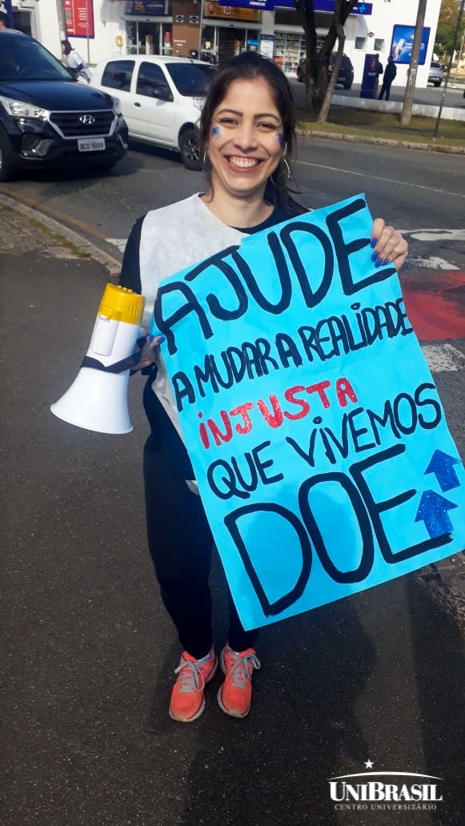 AJUDE
A MUDAR A REALIDADE
INJUSTA
QUE VIVEMOS
DOE
UNIBRASIL
CENTRO UNIVERSITÁRIO